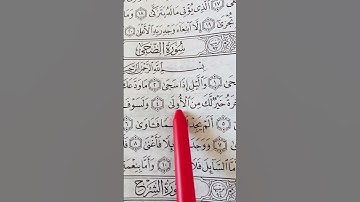 ٱلَّذِى يُؤْتِى مَالَهُۥ يَتَزَكَّىٰ ١٨ وَمَا
تُجْزَىٰٓ ١٩ إِلَّا ٱبْتِغَآءَ وَجْهِ رَبِّهِ ٱلْأَعْلَىٰ
سُورَةُ الضُّحَىٰ
بِسْمِ ٱللَّهِ ٱلرَّحْمَٰنِ
١ وَٱلَّيْلِ إِذَا سَجَىٰ ٢ مَا وَدَّعَكَ
خَيْرٌ لَّكَ مِنَ ٱلْأُولَىٰ ٤ وَلَسَوْفَ
٥ أَلَمْ يَجِدْكَ فَـَٔاوَىٰ ٦
٧ وَوَجَدَكَ فَأَغْنَىٰ ٨
ٱلسَّآئِلَ فَلَا وَأَمَّا بِنِعْمَةِ
سُورَةُ الشَّرْحِ